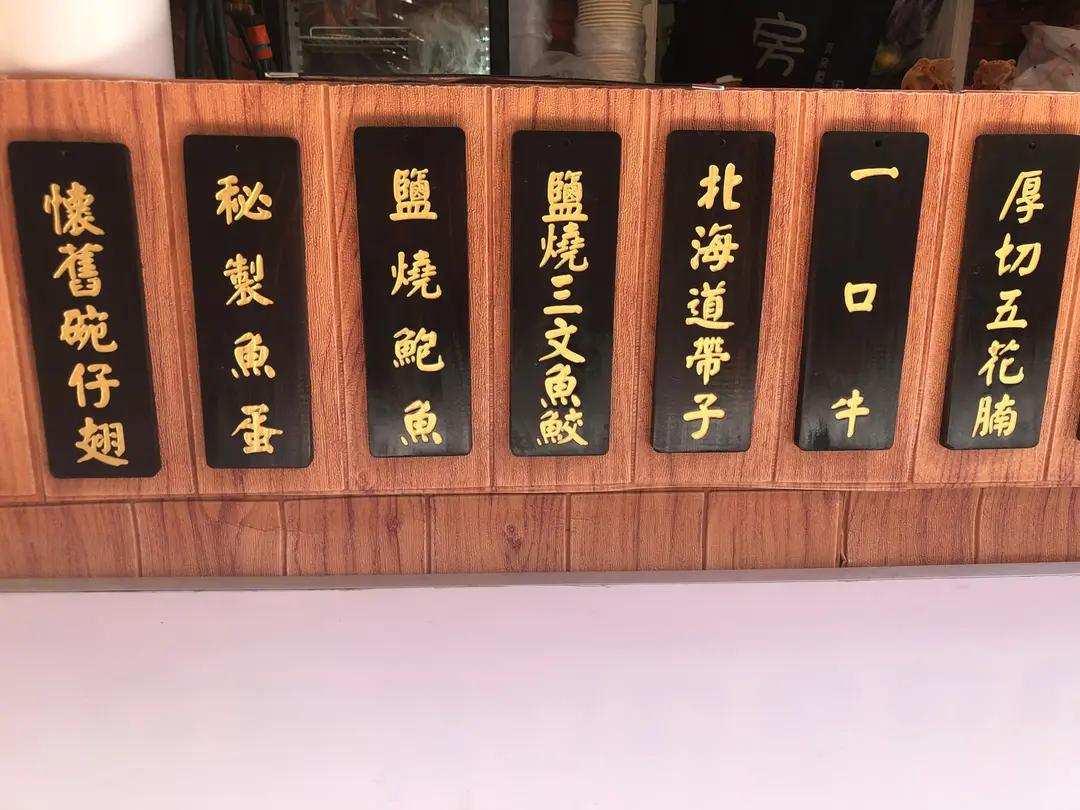 房
懷舊碗仔翅
秘製魚蛋
鹽燒鮑魚
鹽燒三文魚鮫
北海道帶子
一口牛
厚切五花腩